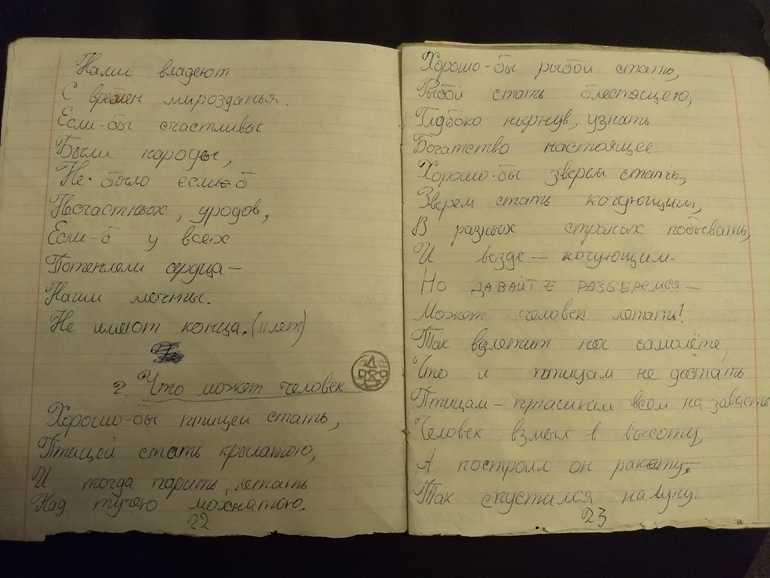 Нами владеют
С времен мирозданья.
Если-бы счастливы
Были народы,
Не было если-б
Несчастных, уродов,
Если-б у всех
Потеплели сердца –
Наши мечты.
Не имеют конца. (7 лет)
2 Что может человек
Хорошо-бы птицей стать,
Птицей стать крылатою,
И тогда парить, летать
Над тучею мохнатою.
22
Хорошо-бы рыбой стать,
Рыбой стать блестящею,
Глубоко нырнув, узнать
Богатство настоящее.
Хорошо-бы зверем стать,
Зверем стать кочующим,
В разных странах побывать,
И везде – ночующим.
Но ДАВАЙТЕ РАЗБЕРЕМСЯ –
Может человек летать!
Так взлетит на самолёте,
Что и птицам не достать
Птицам – пташкам всем на зависть
Человек взмыл в высоту,
А построил он ракету,
Так спустился на луну.
23